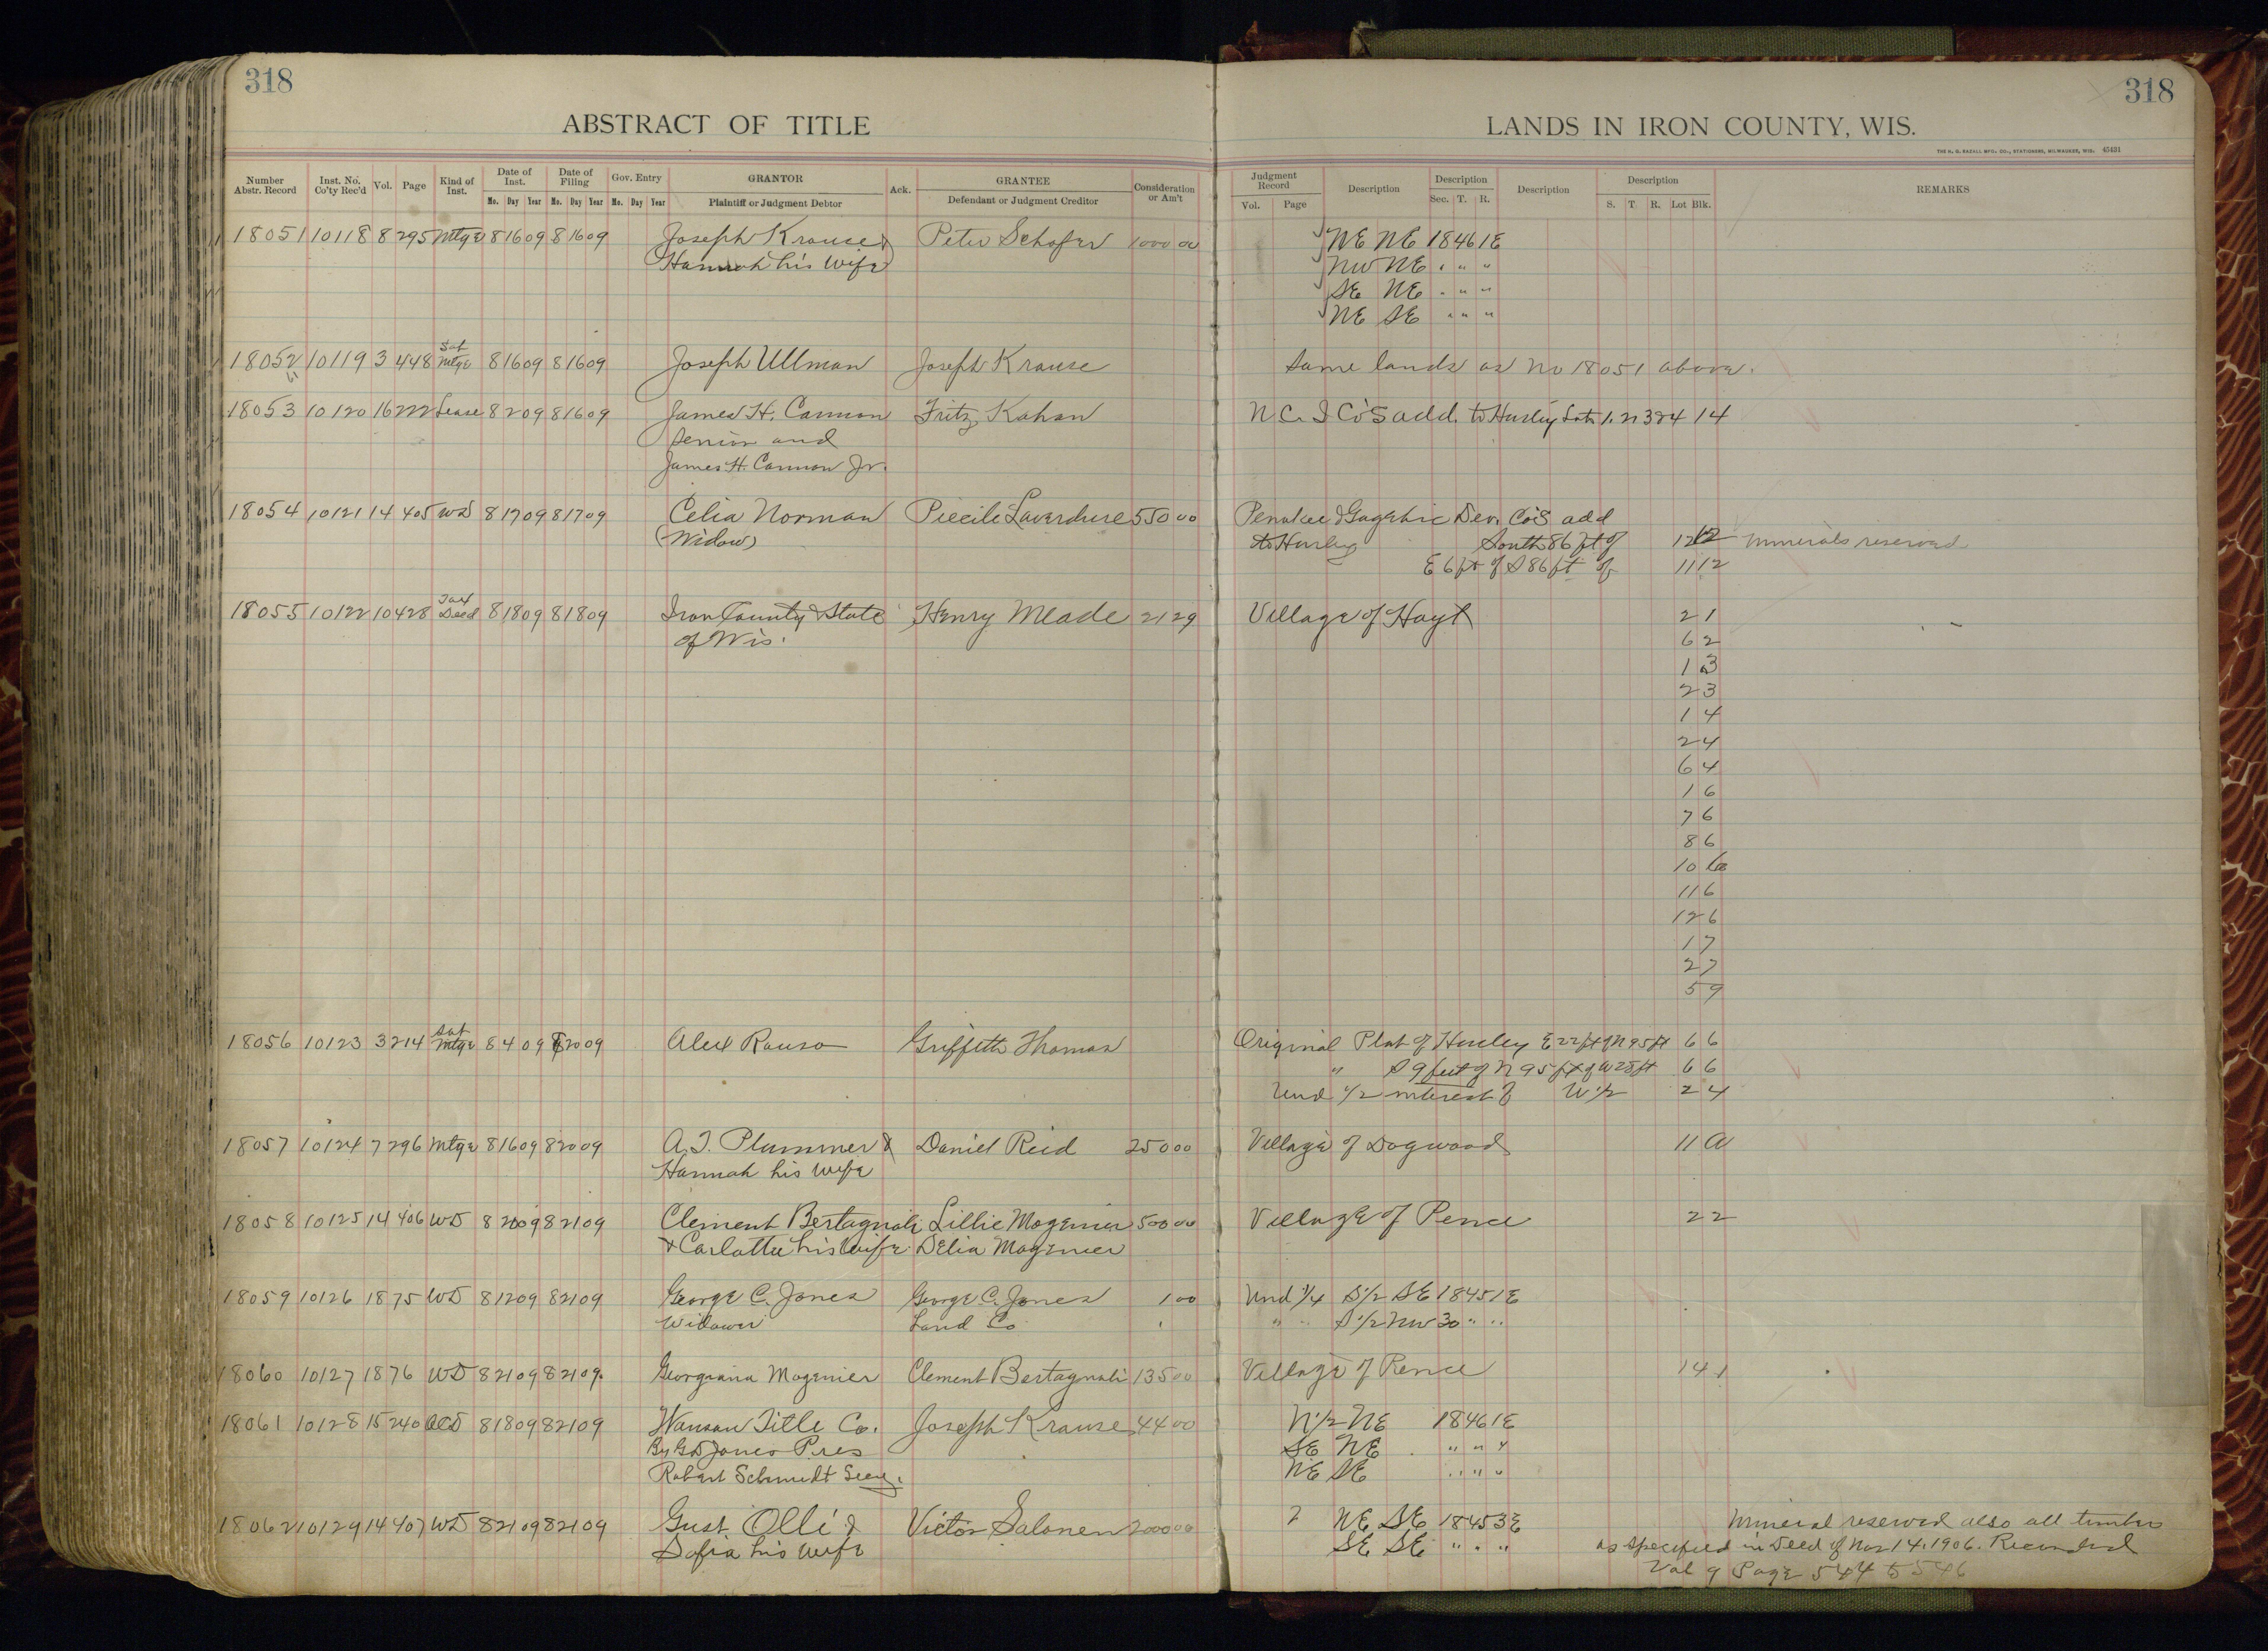 318
ABSTRACT OF TITLE
Number Abstr. Record Inst. No. Co'ty Rec'd Vol. Page Kind of Inst. Date of Inst. Mo. Day Year Date of Filing Mo. Day Year Gov. Entry Mo. Day Year GRANTOR Plaintiff or Judgment Debtor Ack. GRANTEE Defendant or Judgment Creditor Consideration or Am't
18051 10118 8 295 Mtge 8 16 09 8 16 09 Joseph Krause & Peter Schafer 1000 00
Hannah his wife
18052 10119 3 448 Sat Mtge 8 16 09 8 16 09 Joseph Ullman Joseph Krause
18053 10120 16 222 Lease 8 2 09 8 16 09 James H. Cannon Fritz Kahan
Senior and
James H. Cannon Jr.
18054 10121 14 405 WD 8 17 09 8 17 09 Celia Norman Laverdure 550 00
(Widow)
18055 10122 10 428 Tax Deed 8 18 09 8 18 09 Iron County & State Henry Meade 21 29
of Wis.
18056 10123 3 214 Sat Mtge 8 4 09 8 20 09 Alex Griffith Thomas
18057 10124 7 296 Mtge 8 16 09 8 20 09 A. J. Plummer & Daniel Reid 250 00
Hannah his wife
18058 10125 14 406 WD 8 20 09 8 21 09 Clement Bertagnoli Lillie Mogenier 500 00
& Carlotta his Wife Delia Mogenier
18059 10126 18 75 WD 8 12 09 8 21 09 George C. Jones George C. Jones 1 00
Widower Land Co
18060 10127 18 76 WD 8 21 09 8 21 09 Georgiana Mogenier Clement Bertagnoli 135 00
18061 10128 15 240 QCD 8 18 09 8 21 09 Wausau Title Co. Joseph Krause 44 00
By G D Jones Pres
Robert Schmidt Secy.
18062 10129 14 407 WD 8 21 09 8 21 09 Gust Olli & Victor Salonen 2000 00
Sofia his wife
318
LANDS IN IRON COUNTY, WIS.
THE H. G. RAZALL MFG. CO., STATIONERS, MILWAUKEE, WIS. 45431
Judgment Record Vol. Page Description Description Sec. T. R. Description Description S. T. R. Lot Blk. REMARKS
NE NE 18 46 1E
NW NE " " "
SE NE " " "
NE SE " " "
Same lands as No 18051 above.
N C. I Co's add. to Hurley Lots 1. 2 3 & 4 14
Penokee & Gogebic Dev. Co's add
to Hurley South 86 ft of 12 12 Minerals reserved
E 6 ft of S 86 ft of 11 12
Village of Hoyt 2 1
6 2
1 3
2 3
1 4
2 4
6 4
1 6
7 6
8 6
10 6
11 6
12 6
1 7
2 7
5 9
Original Plat of Hurley E 22 ft of N 95 ft 6 6
" S 9 feet of N 95 ft of W 28 ft 6 6
Und 1/2 interest of W 1/2 2 4
Village of Dogwood 11 A
Village of Pence 2 2
Und 1/4 S 1/2 SE 18 45 1E
" " S 1/2 NW 30 " "
Village of Pence 14 1
N 1/2 NE 18 46 1E
SE NE " " "
NE SE " " "
? NE SE 18 45 3E Mineral reserved also all timber
SE SE " " " as specified in Deed of Nov 14. 1906. Recorded
Vol 9 Page 544 to 546